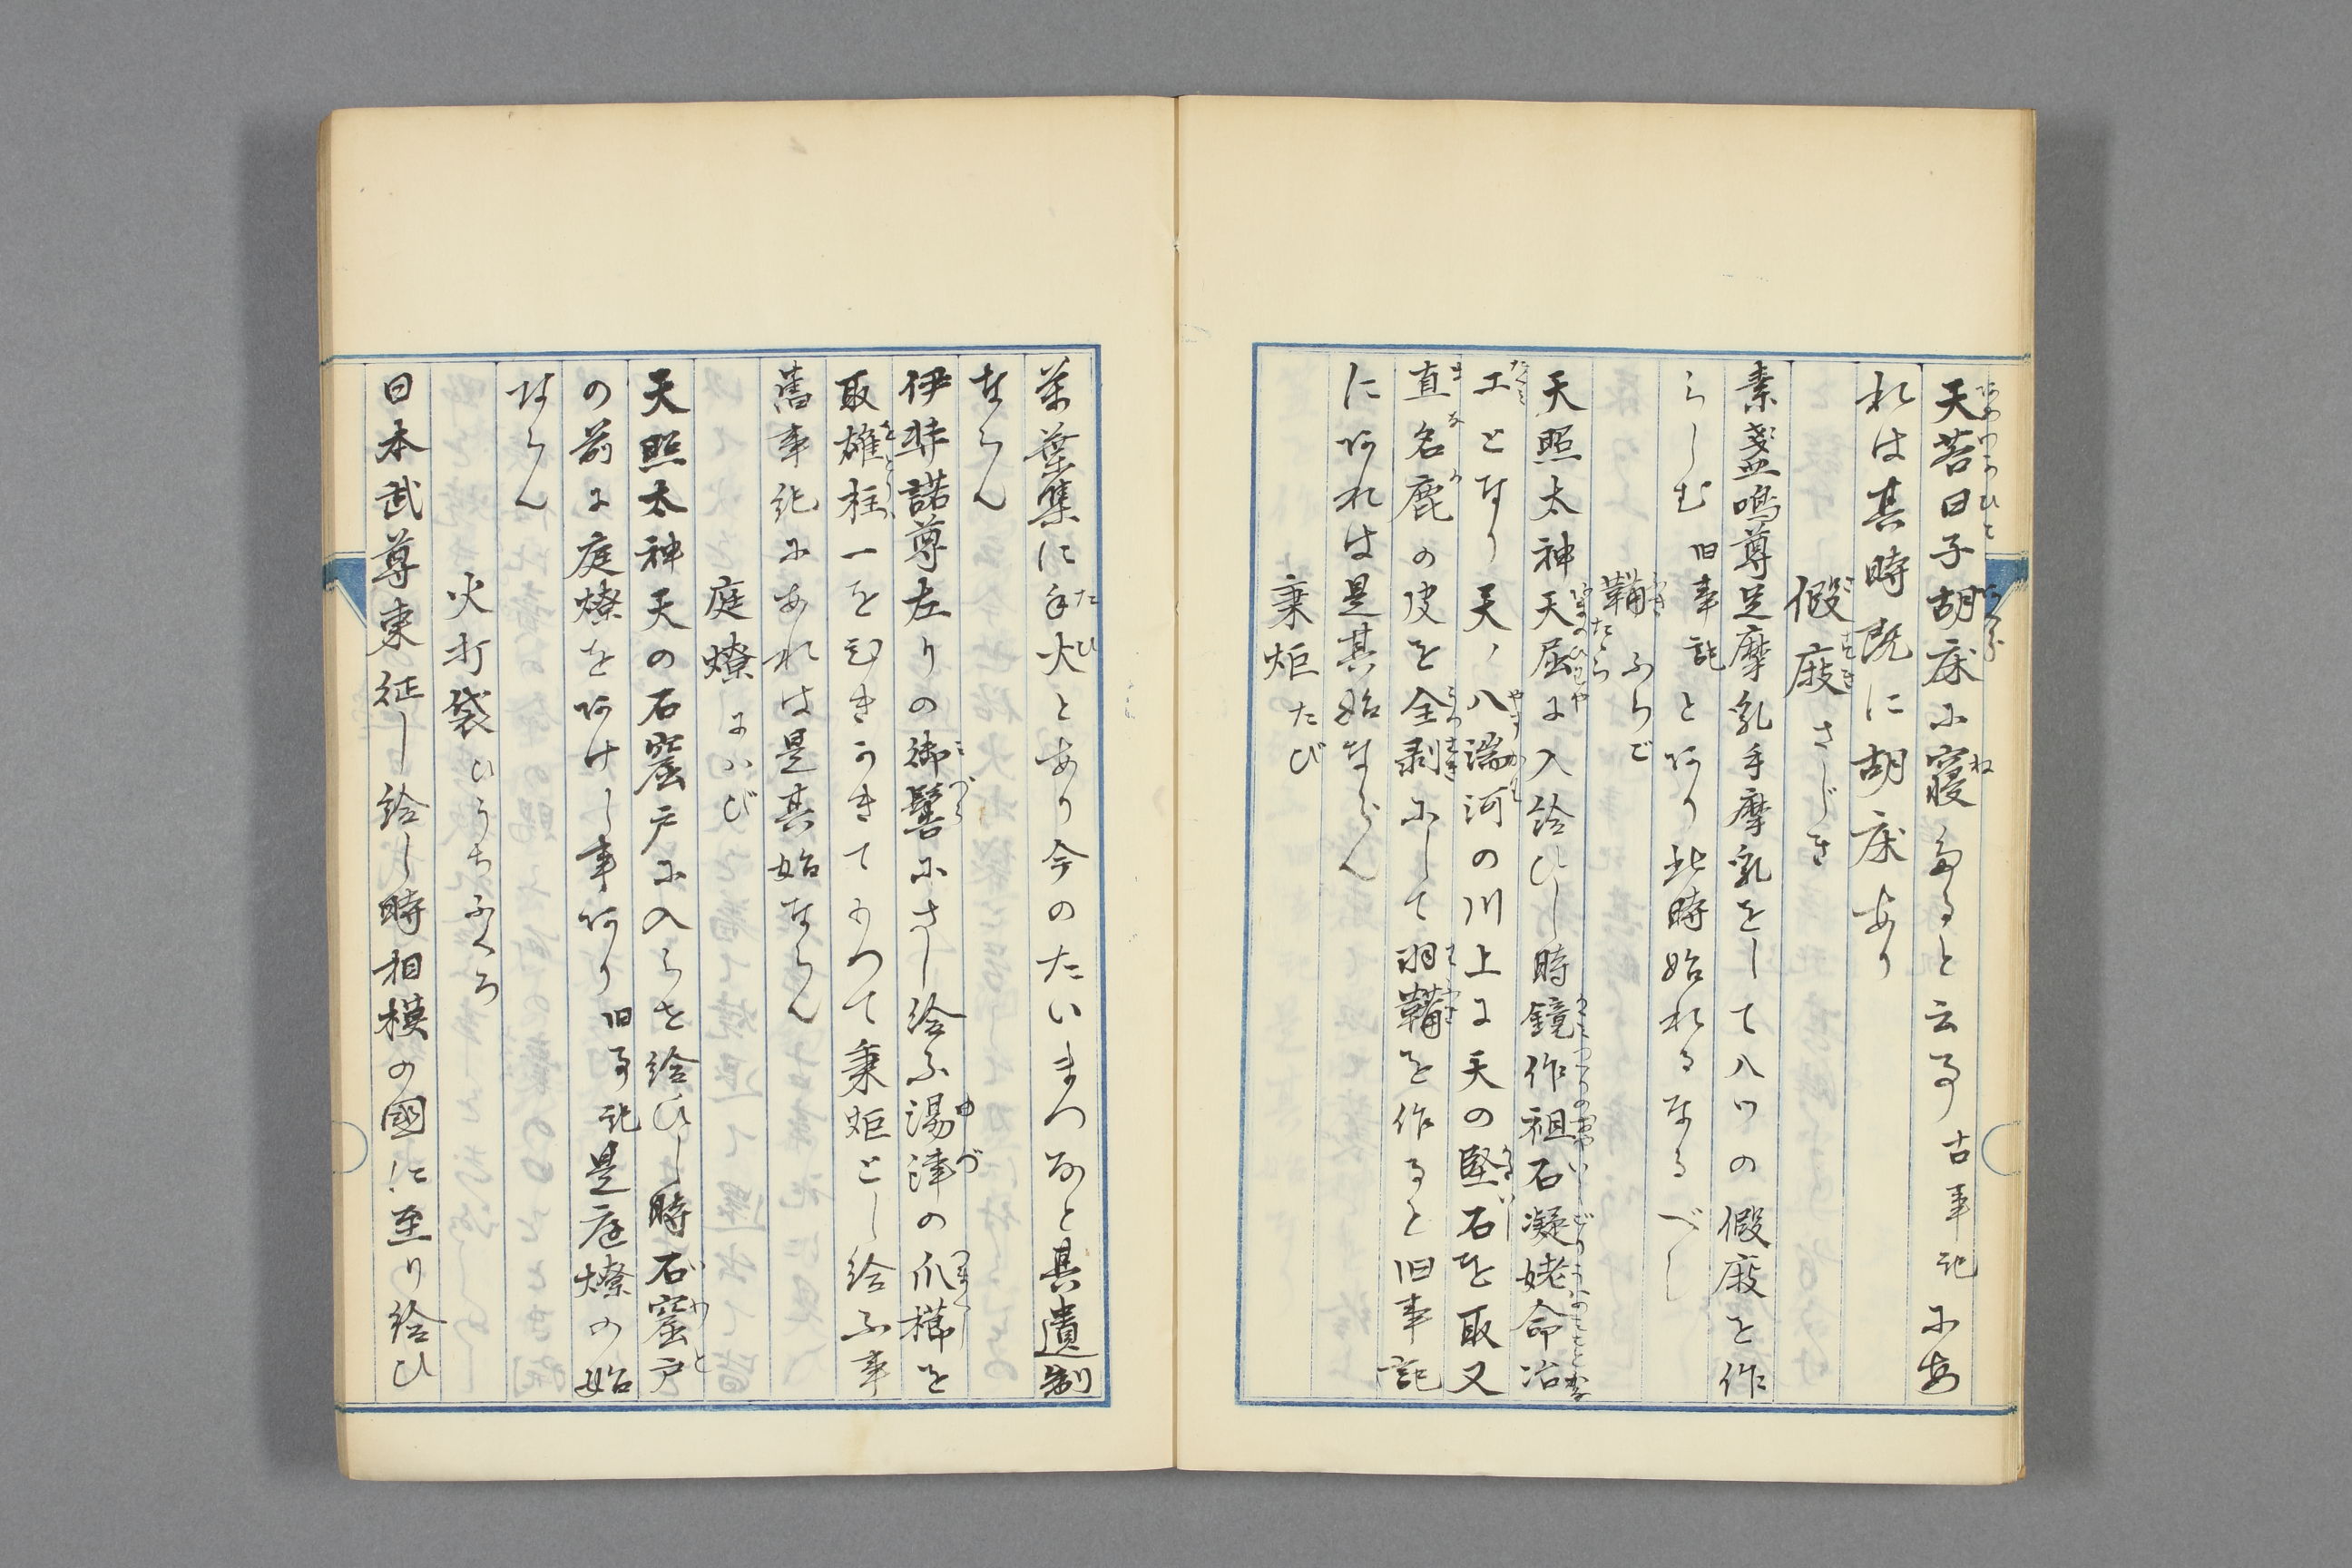 天若日子胡床に寝たると云事古事記にあ
れは其時既に胡床あり
假庪さじき
素盞嗚尊足摩乳手摩乳をして八ツの假庪を作
らしむ旧事記とあり此時始れるなるべし
鞴ふらご
天照太神天屈に入給ひし時鏡作祖石凝姥命冶
工となり天ノ八湍河の川上に天の堅石を取又
直名鹿の皮を全剥にして羽鞴を作ると旧事記
にあれは是其始ならん
秉炬たび
萬葉集に手火とあり今のたいまつなと其遺制
ならん
伊弉諾尊左りの御鬘にさし給ふ湯津の爪櫛を
取雄柱一をひきかきてもつて秉炬とし給ふ事
舊事記にあれは是其始ならん
庭燎にハび
天照太神天の石窟戸に入らせ給ひし時石窟戸
の前に庭燎をあけし事あり旧事記是庭燎の始
ならん
火打袋ひうちふくろ
日本武尊東征し給し時相模の國に至り給ひ